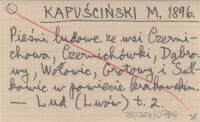 KAPUŚCIŃSKI M. 1896.
Pieśni ludowe ze wsi Czerni-
chowa, Czernichówki, Dąbro-
wy, Wołowic, Grotowy i Sut-
kowic w powiecie krakowskim.
— Lud (Lwów) t. 2.